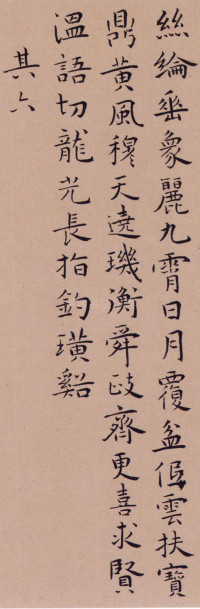 絲綸垂象麗九霄日月覆盆低雲扶寶
鼎黃風穆天遶璣衡舜政齊更喜求賢
溫語切龍光長指釣璜谿
其六